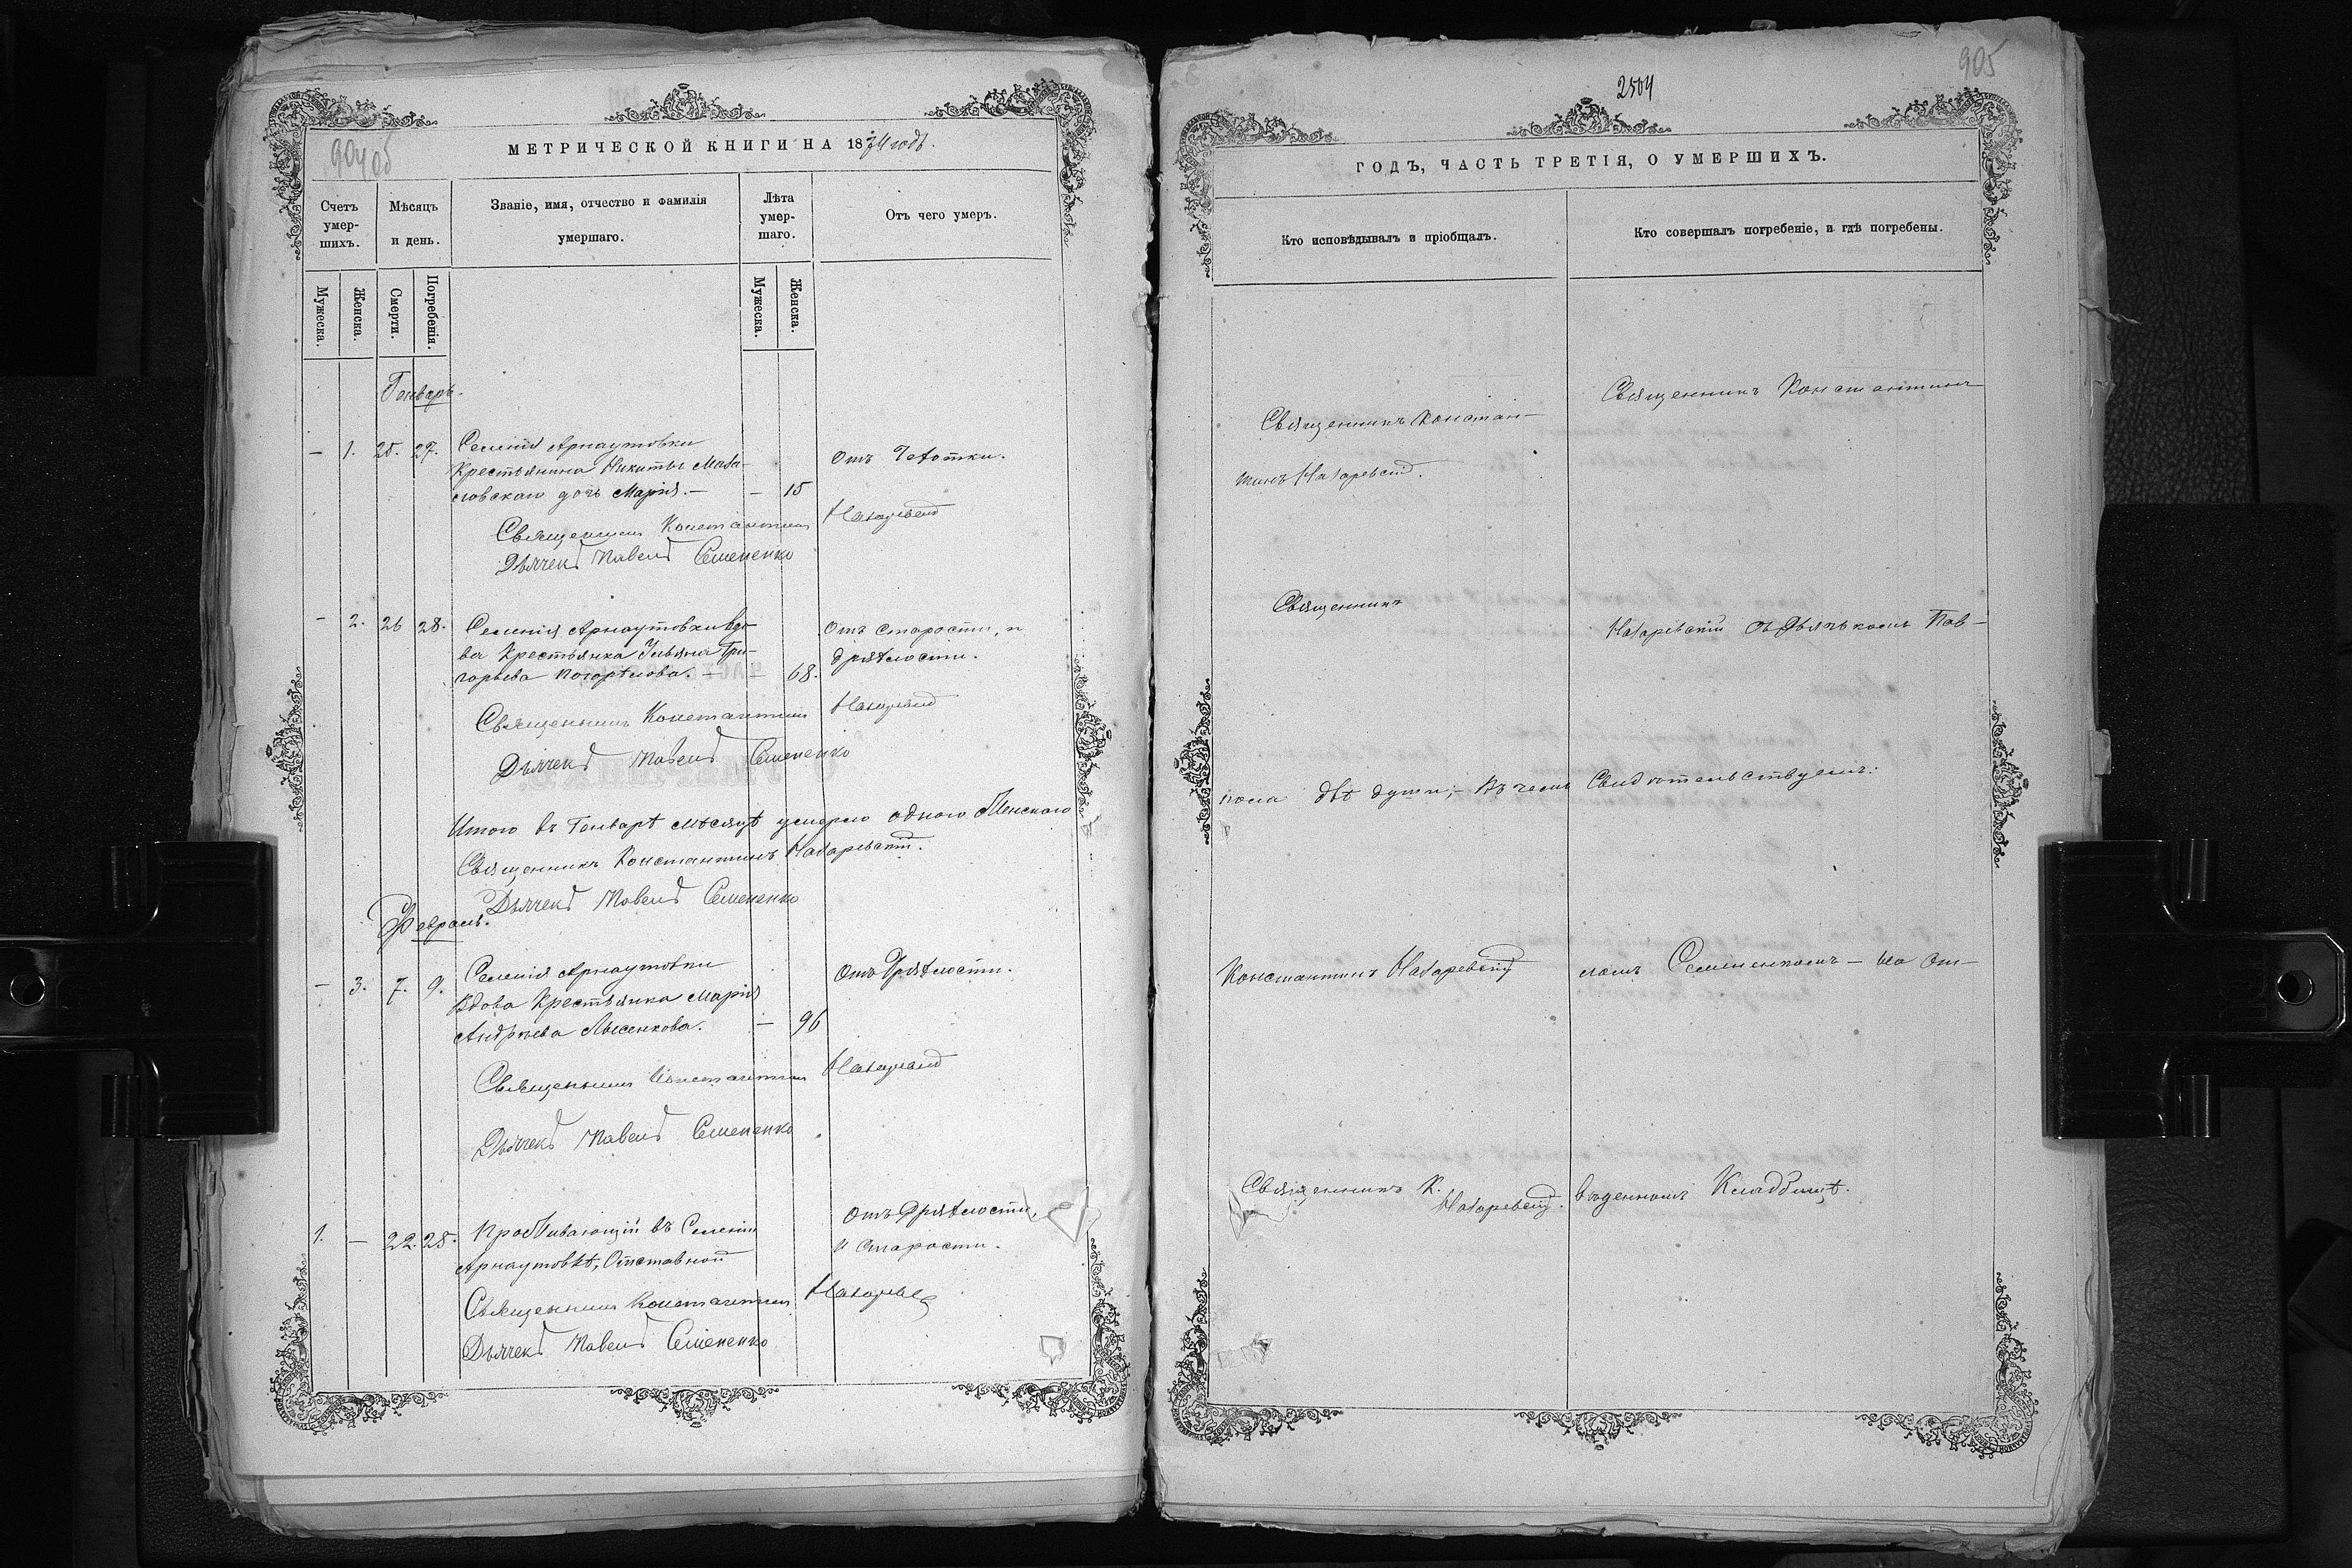 904об
МЕТРИЧЕСКОЙ КНИГИ НА 1874 годъ.
Счетъ умер-шихъ.
Мѣсяцъ и день.
Званіе, имя, отчество и фамилія умершаго.
Лѣта умер-шаго.
Отъ чего умеръ.
Мужеска.
Женска.
Смерти.
Погребенія.
Мужеска.
Женска.
Генварь.
— 1. 25. 27. Селенія Арнаутовки
Крестьянина Никиты
дочь Марія. — — 15
отъ Чахотки.
Священникъ Константинъ Назаревскій
Дьячекъ Павелъ Семененко
— 2. 26 28. Селенія Арнаутовки Вдо-
ва Крестьянка Ульяна Гри-
горьева Погорѣлова. — — 68.
Отъ старости, и
дряхлости.
Священникъ Константинъ Назаревскій
Дьячекъ Павелъ Семененко
Итого въ Генварѣ мѣсяцѣ умерло одного Женскаго
Священникъ Константинъ Назаревскій.
Дьячекъ Павелъ Семененко
Февраль.
— 3. 7. 9. Селенія Арнаутовки
Вдова Крестьянка Марія
Андреева Лысенкова. — 96
Отъ Дряхлости.
Священникъ Константинъ Назаревскій
Дьячекъ Павелъ Семененко
1. — 22. 25. Проживающій въ Селеніи
Арнаутовкѣ, Отставной
Отъ Дряхлости,
и старости.
Священникъ Константинъ Назаревс
Дьячекъ Павелъ Семененко
2504
905
ГОДЪ, ЧАСТЬ ТРЕТІЯ, О УМЕРШИХЪ.
Кто исповѣдывалъ и пріобщалъ.
Кто совершалъ погребеніе, и гдѣ погребены.
Священникъ Констан-
тинъ Назаревскій.
Священникъ Константинъ
Священникъ
Назаревскій съ Дьячькомъ Пав-
пола двѣ души; — Въ чемъ Свидѣтельствуемъ:
Константинъ Назаревскій
ломъ Семененкомъ — на От-
Священникъ К.
Назаревскій.
веденномъ Кладбищѣ.